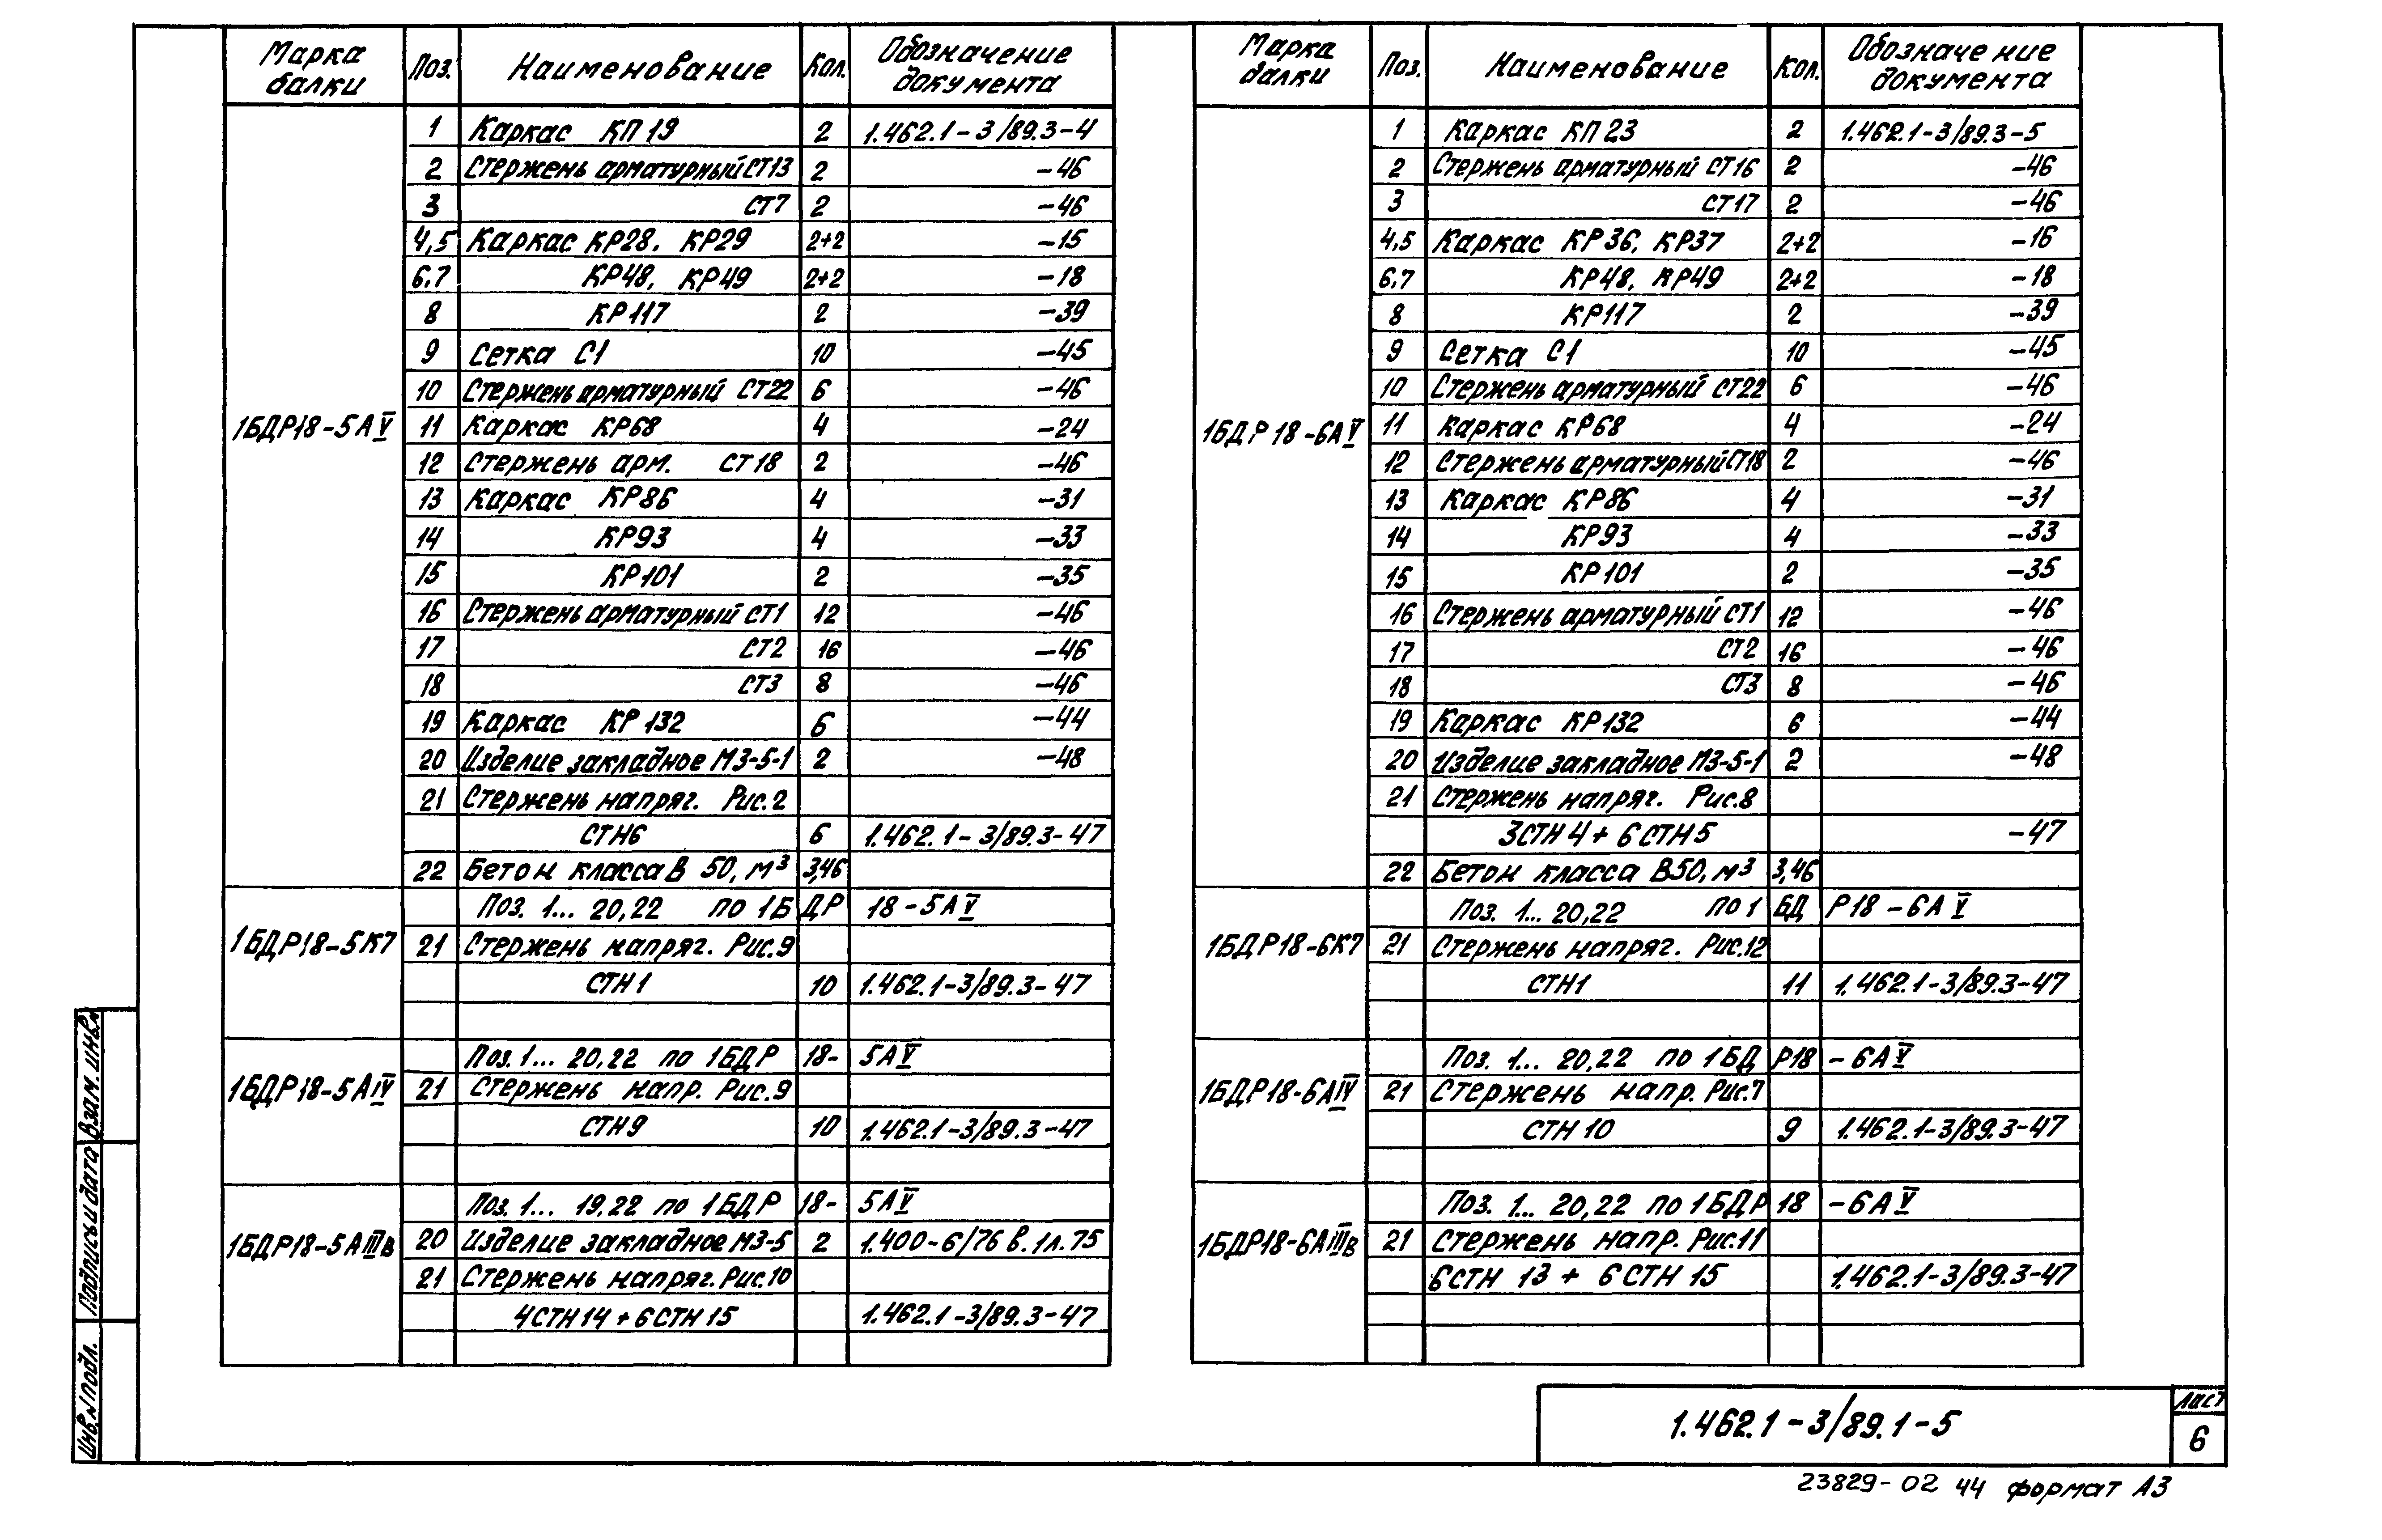 Марка балки | Поз. | Наименование | Кол. | Обозначение документа
1БДР18-5АV | 1 | Каркас КП19 | 2 | 1.462.1-3/89.3-4
2 | Стержень арматурный СТ13 | 2 | -46
3 | СТ7 | 2 | -46
4,5 | Каркас КР28, КР29 | 2+2 | -15
6,7 | КР48, КР49 | 2+2 | -18
8 | КР117 | 2 | -39
9 | Сетка С1 | 10 | -45
10 | Стержень арматурный СТ22 | 6 | -46
11 | Каркас КР68 | 4 | -24
12 | Стержень арм. СТ18 | 2 | -46
13 | Каркас КР86 | 4 | -31
14 | КР93 | 4 | -33
15 | КР101 | 2 | -35
16 | Стержень арматурный СТ1 | 12 | -46
17 | СТ2 | 16 | -46
18 | СТ3 | 8 | -46
19 | Каркас КР132 | 6 | -44
20 | Изделие закладное МЗ-5-1 | 2 | -48
21 | Стержень напряг. Рис.2
СТН6 | 6 | 1.462.1-3/89.3-47
22 | Бетон класса В 50, м³ | 3,46
1БДР18-5К7 | Поз. 1... 20,22 по 1БДР 18-5АV
21 | Стержень напряг. Рис.9
СТН1 | 10 | 1.462.1-3/89.3-47
1БДР18-5АIV | Поз. 1... 20,22 по 1БДР 18-5АV
21 | Стержень напр. Рис.9
СТН9 | 10 | 1.462.1-3/89.3-47
1БДР18-5АIIIв | Поз. 1... 19,22 по 1БДР 18-5АV
20 | Изделие закладное МЗ-5 | 2 | 1.400-6/76 в.1л.75
21 | Стержень напряг. Рис.10
4СТН14 + 6СТН15 | 1.462.1-3/89.3-47
Марка балки | Поз. | Наименование | Кол. | Обозначение документа
1БДР18-6АV | 1 | Каркас КП23 | 2 | 1.462.1-3/89.3-5
2 | Стержень арматурный СТ16 | 2 | -46
3 | СТ17 | 2 | -46
4,5 | Каркас КР36, КР37 | 2+2 | -16
6,7 | КР48, КР49 | 2+2 | -18
8 | КР117 | 2 | -39
9 | Сетка С1 | 10 | -45
10 | Стержень арматурный СТ22 | 6 | -46
11 | Каркас КР68 | 4 | -24
12 | Стержень арматурный СТ18 | 2 | -46
13 | Каркас КР86 | 4 | -31
14 | КР93 | 4 | -33
15 | КР101 | 2 | -35
16 | Стержень арматурный СТ1 | 12 | -46
17 | СТ2 | 16 | -46
18 | СТ3 | 8 | -46
19 | Каркас КР132 | 6 | -44
20 | Изделие закладное МЗ-5-1 | 2 | -48
21 | Стержень напряг. Рис.8
3СТН4 + 6СТН5 | -47
22 | Бетон класса В50, м³ | 3,46
1БДР18-6К7 | Поз. 1... 20,22 по 1БДР18-6АV
21 | Стержень напряг. Рис.12
СТН1 | 11 | 1.462.1-3/89.3-47
1БДР18-6АIV | Поз. 1... 20,22 по 1БДР18-6АV
21 | Стержень напр. Рис.7
СТН10 | 9 | 1.462.1-3/89.3-47
1БДР18-6АIIIв | Поз. 1... 20,22 по 1БДР18-6АV
21 | Стержень напр. Рис.11
6СТН 13 + 6СТН 15 | 1.462.1-3/89.3-47
Взам. инв.№
Подпись и дата
Инв.№ подл.
1.462.1-3/89.1-5
Лист
6
23829-02 44 формат А3